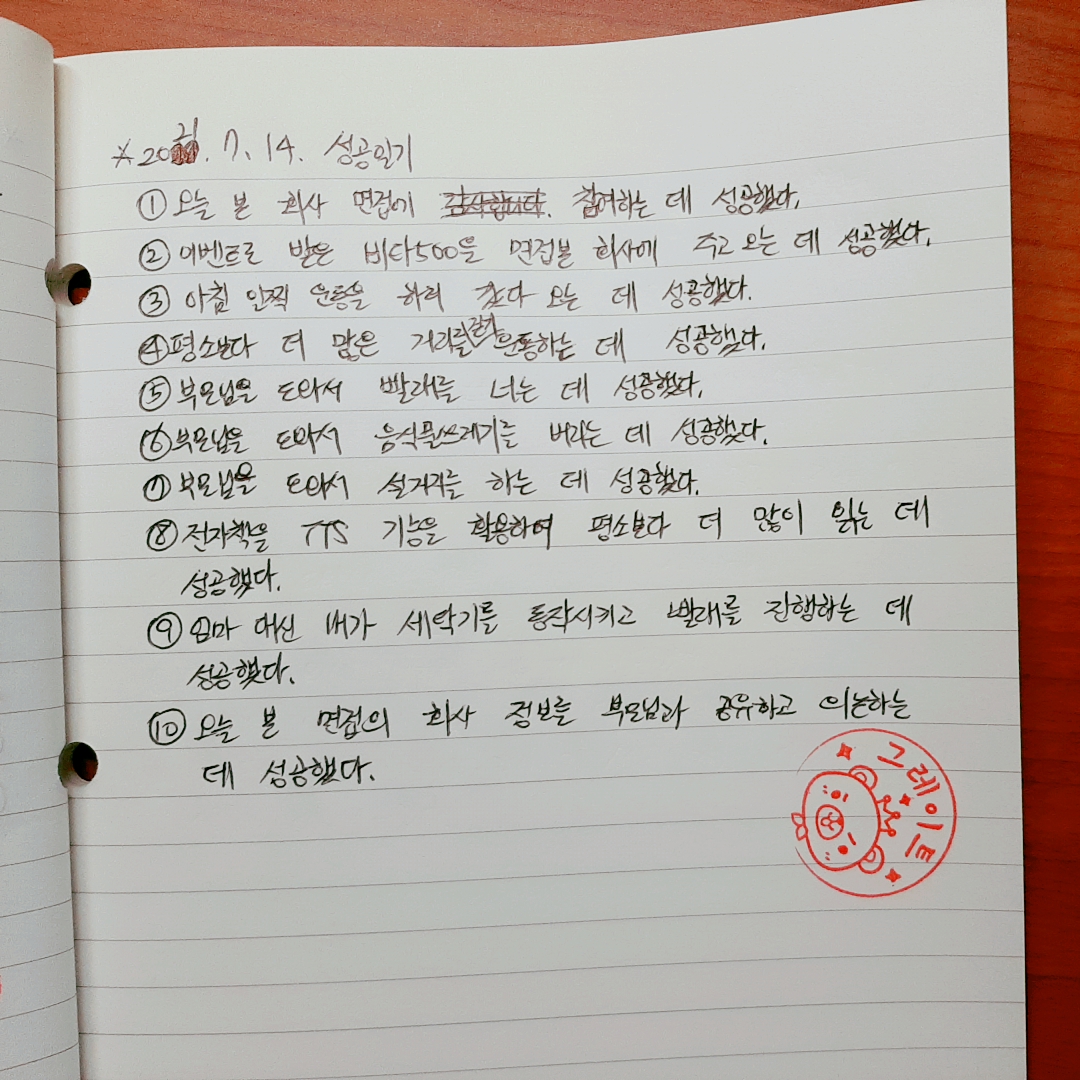 ※ 2021. 7. 14. 성공일기
① 오늘 본 회사 면접에 감사합니다. 참여하는 데 성공했다.
② 이벤트로 받은 비타500을 면접본 회사에 주고 오는 데 성공했다.
③ 아침 일찍 운동을 하러 갔다 오는 데 성공했다.
④ 평소보다 더 많은 거리를 걷기 운동하는 데 성공했다.
⑤ 부모님을 도와서 빨래를 너는 데 성공했다.
⑥ 부모님을 도와서 음식물쓰레기를 버리는 데 성공했다.
⑦ 부모님을 도와서 설거지를 하는 데 성공했다.
⑧ 전자책을 TTS 기능을 활용하여 평소보다 더 많이 읽는 데
성공했다.
⑨ 엄마 대신 내가 세탁기를 동작시키고 빨래를 진행하는 데
성공했다.
⑩ 오늘 본 면접의 회사 정보를 부모님과 공유하고 의논하는
데 성공했다.
그레이트